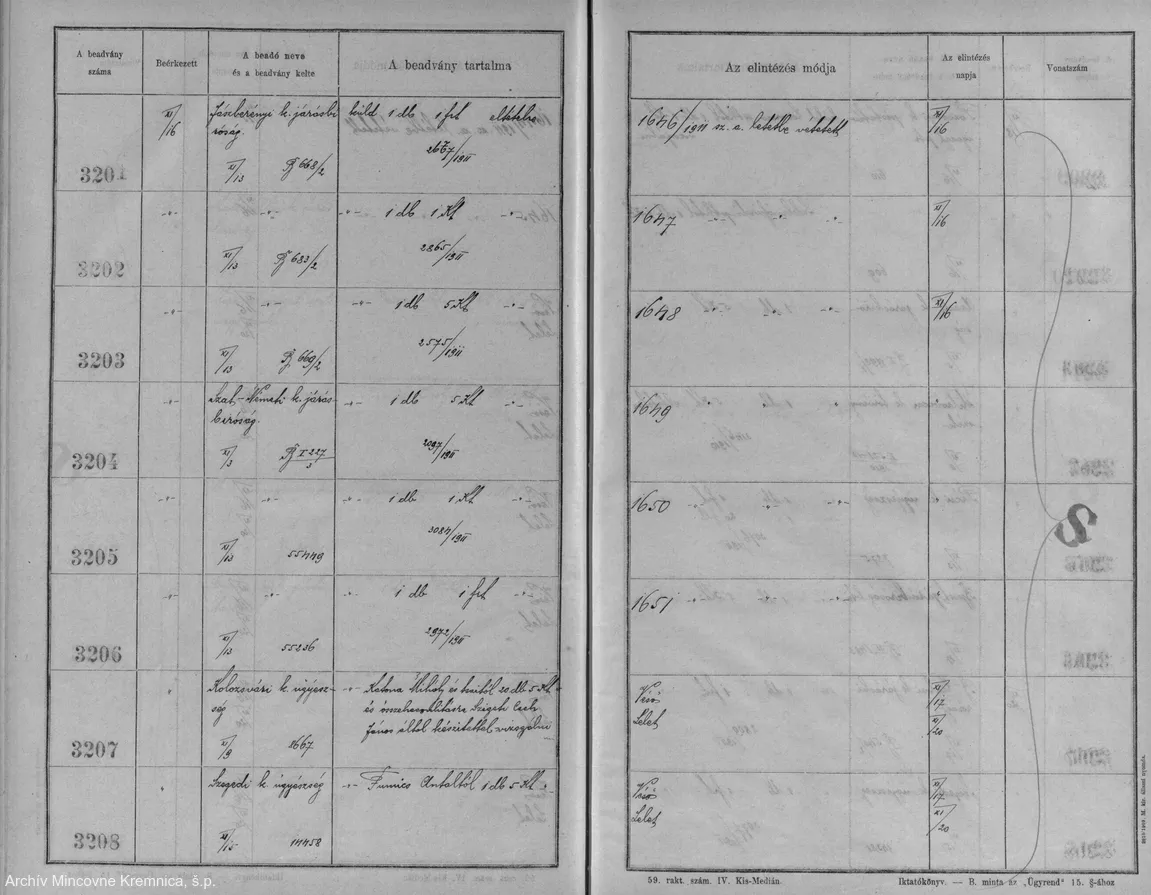 A beadvány száma
Beérkezett
A beadó neve és a beadvány kelte
A beadvány tartalma
Az elintézés módja
Az elintézés napja
Vonatszám
3201
XI/16
Jászberényi k. járásbi
róság.
XI/13 668/2
küld 1 db 1 frt
2667/1911
1646/1911 sz. a. letétbe vétetett
XI/16
3202
-"- -"- -"- 1 db 1 Kt -"-
XI/13 683/2
2865/1911
1647 -"- -"- -"-
XI/16
3203
-"- -"- -"- 1 db 5 Kt -"-
XI/13 669/2
2575/1911
1648
XI/16
3204
-"- Szat-Németi k. járás-
bíróság
-"- 1 db 5 Kt -"-
XI/3 I 227/3
2097/1911
1649
3205
-"- -"- -"- 1 db 1 Kt -"-
XI/13 55449
3084/1911
1650
3206
-"- -"- 1 db 1 frt -"-
XI/13 55236
2972/1911
1651
3207
Kolozsvári k. ügyész-
ség
XI/9 1667
-"- Katona Mihály és társaitól 20 db 5 Kt
és összehasonlításra Szigeti Cseh
János által készítettel vizsgálni
Vissz
Lelet
XI/17
XI/20
3208
Szegedi k. ügyészség
XI/15 14458
-"- Antaltól 1 db 5 Kt
Vissz
Lelet
XI/17
XI/20
59. rakt. szám. IV. Kis-Medián.
Iktatókönyv. — B. minta az „Ügyrend" 15. §-ához
Archív Mincovne Kremnica, š.p.